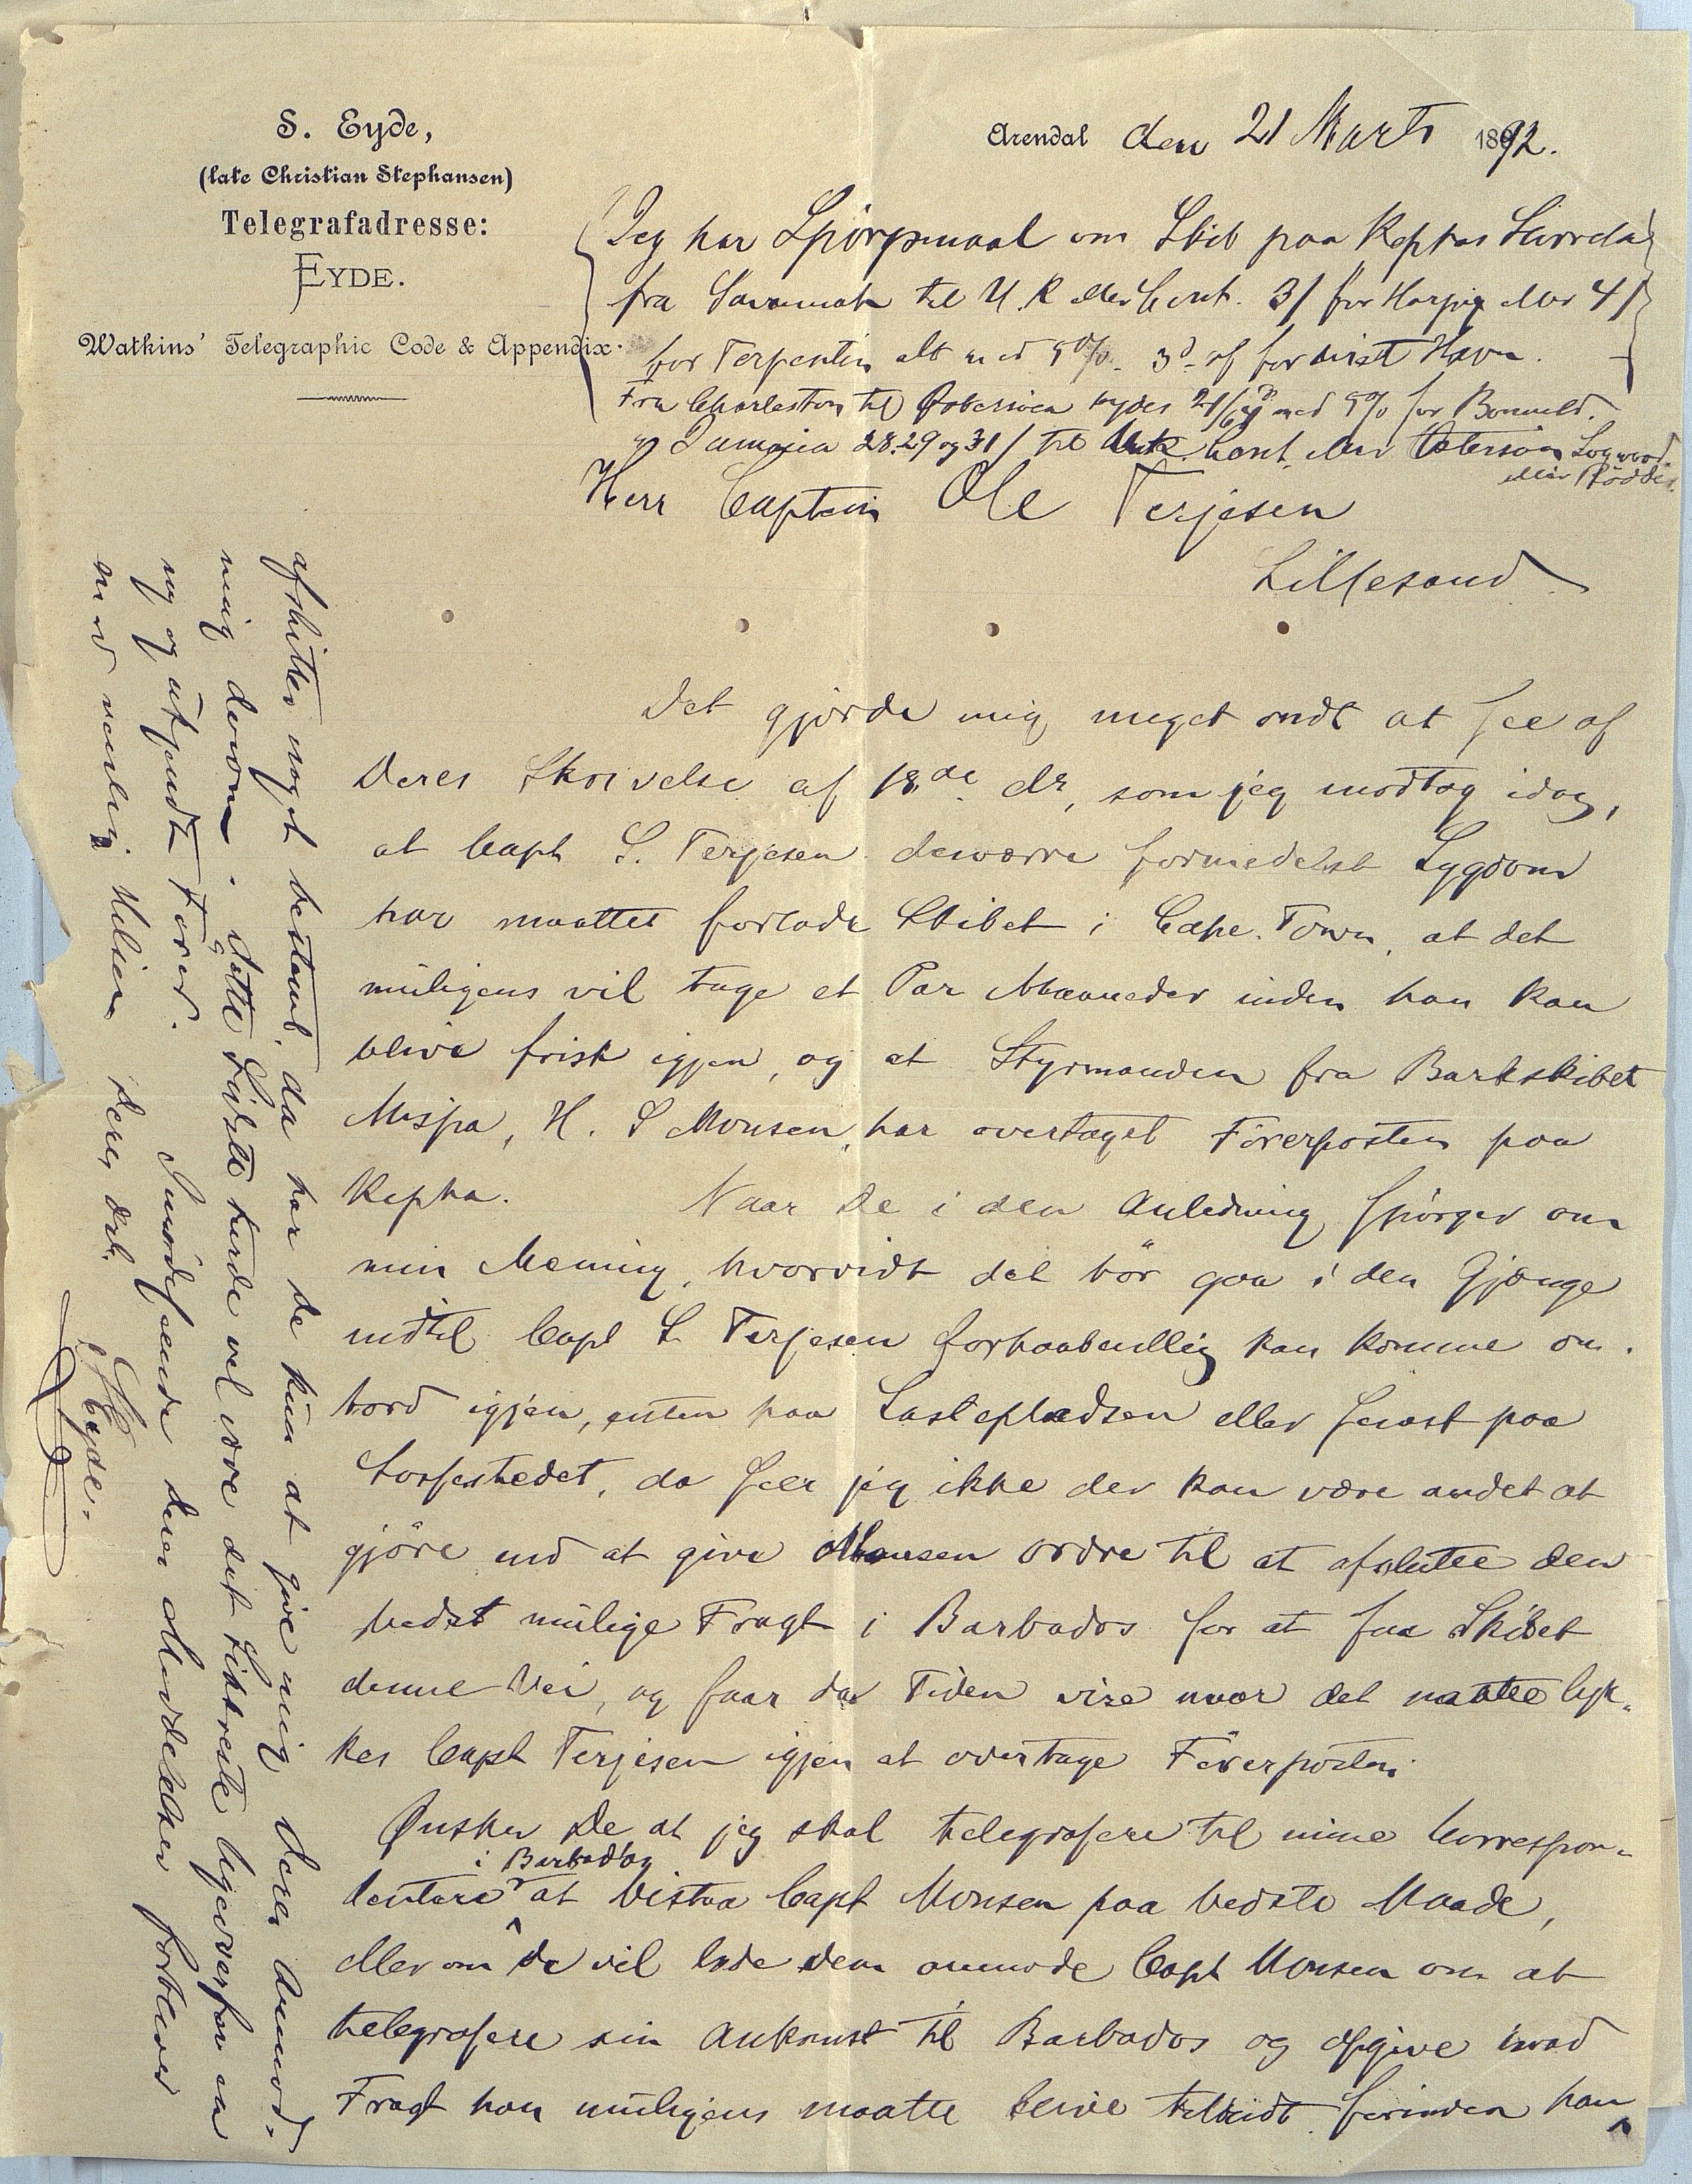 S. Eyde,
(late Christian Stephansen)
Telegrafadresse:
EYDE.
Watkins' Telegraphic Code & Appendix.
Arendal den 21 Marts 1892.
Jeg har Spörgsmaal om Skib paa Kephas
fra Savannah til U.K eller Cont. 3/ for Harpix eller 4/
for Terpentin alt med 5%. 3d af for direct Havn.
Fra Charleston til Østersöen bydes med 5% for Bomuld.
" Jamaica 28. 29 og 31/ til U.K. Cont. eller Østersöen Logwood
eller Rödder.
Herr Captein Ole Terjesen
Lillesand
Det gjörde mig meget ondt at see af
Deres Skrivelse af 18de ds, som jeg modtog idag,
at Capt S. Terjesen desværre formedelst Sygdom
har maattet forlade Skibet i Cape Town, at det
muligens vil tage et Par Maaneder inden han kan
blive frisk igjen, og at Styrmanden fra Barkskibet
Mispa, H. S Monsen, har overtaget Förerposten paa
Kepha. Naar De i den Anledning spörger om
min Mening, hvorvidt det bör gaa i den Gjænge
indtil Capt S. Terjesen forhaabentlig kan komme om-
bord igjen, enten paa Lastepladsen eller senest paa
Lossestedet, da seer jeg ikke der kan være andet at
gjöre end at give Monsen Ordre til at afslutte den
bedst mulige Fragt i Barbados for at faa Skibet
denne Vei, og faar da Tiden vise naar det maatte lyk-
kes Capt Terjesen igjen at overtage Förerposten.
Ønsker De at jeg skal telegrafere til mine Correspon-
i Barbados
denter at bistaa Capt Monsen paa bedste Maade,
eller om De vil lade dem anmode Capt Monsen om at
telegrafere sin Ankomst til Barbados og opgive hvad
Fragt han muligens maatte blive tilbudt forinden han
afslutter noget bestemt, da har De kun at give mig Deres Anmod-
ning derom. Dette sidste turde vel være det sikkreste ligeoverfor en
ny og ukjendt Förer. Imödeseende Deres Meddelelser forbliver
med venlig Hilsen Deres
S. Eyde.